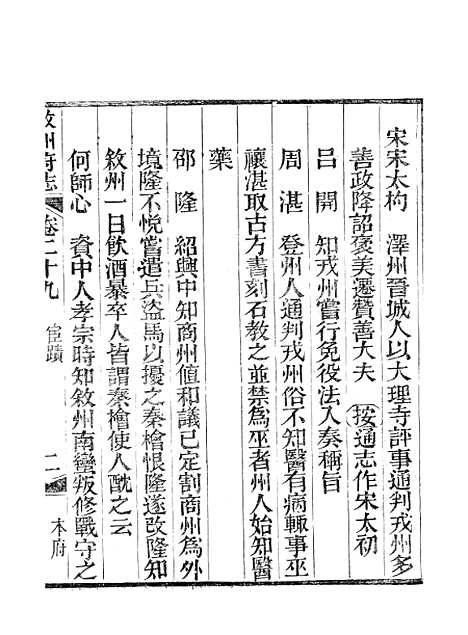 宋宋太杓　澤州晉城人以大理寺評事通判戎州多
善政降詔褒美遷贊善大夫　按通志作宋太初
呂　開　知戎州嘗行免役法入奏稱旨
周　湛　登州人通判戎州俗不知醫有病輒事巫
禳湛取古方書刻石教之並禁為巫者州人始知醫
藥
邵　隆　紹興中知商州值和議已定割商州為外
境隆不悅嘗遣兵盜馬以擾之秦檜恨隆遂改隆知
敘州一日飲酒暴卒人皆謂秦檜使人酖之云
何師心　資中人孝宗時知敘州南蠻叛修戰守之
敘州府志　卷二十九　宦蹟　二　本府